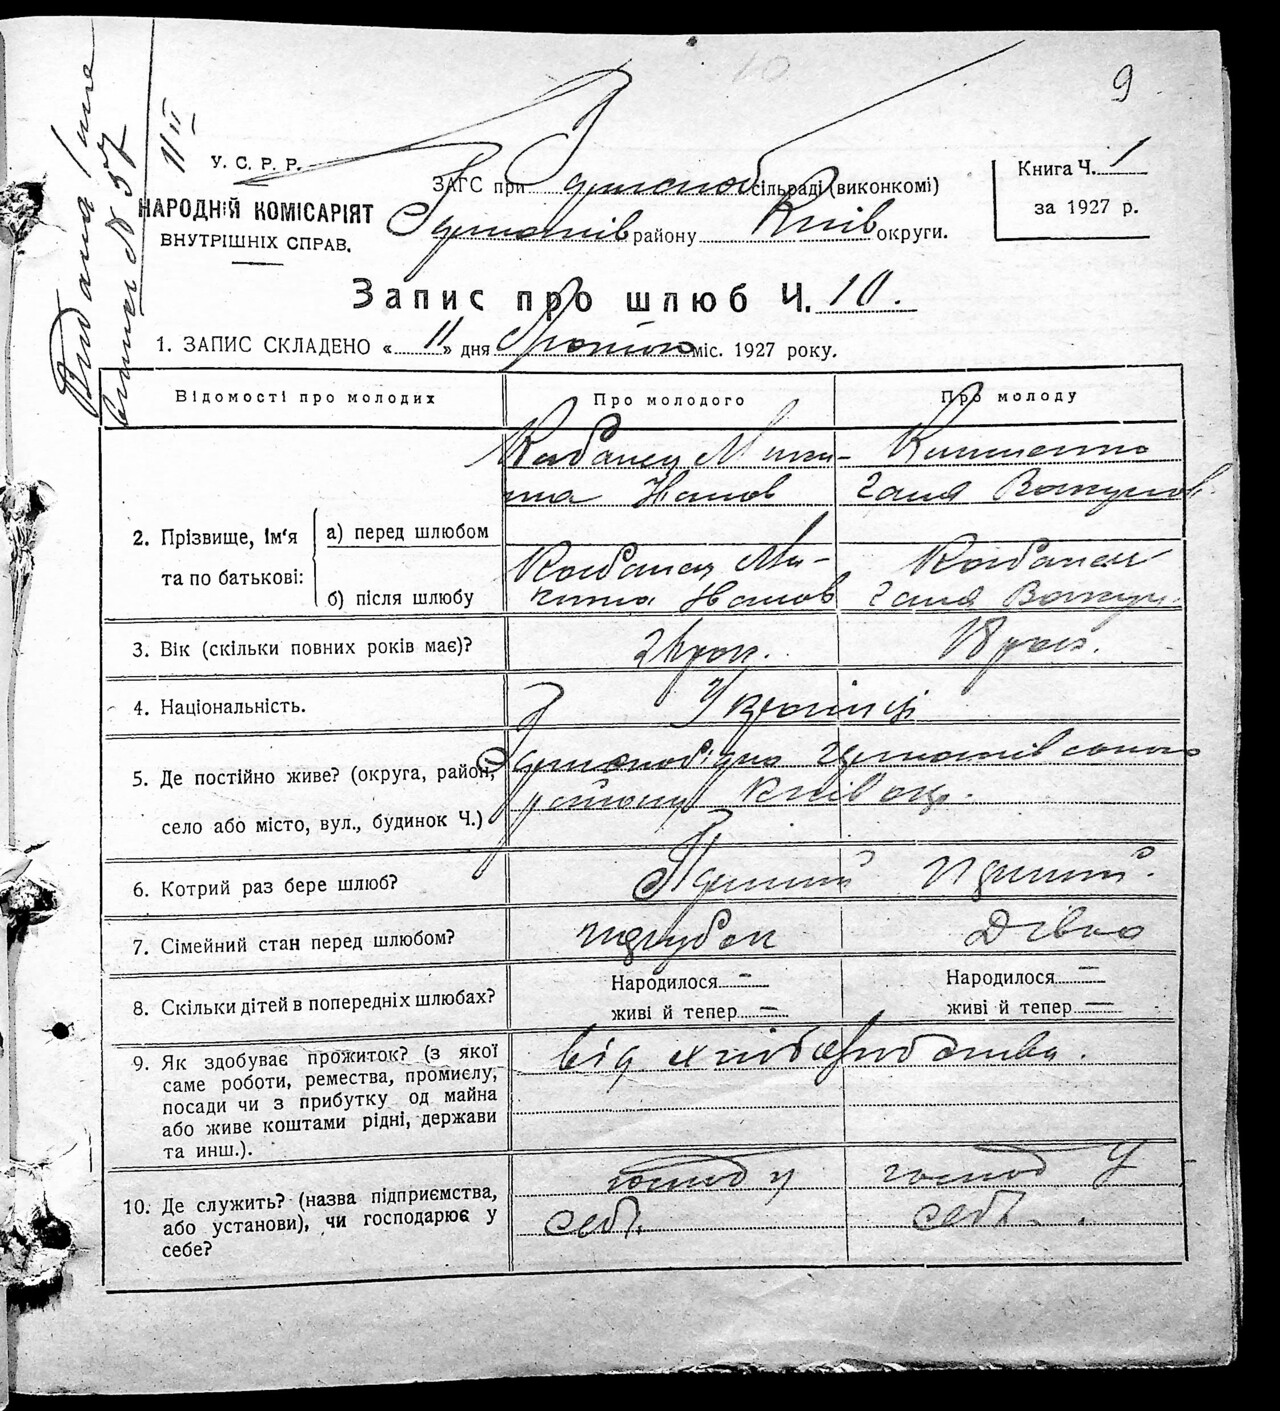 10
9
11/II
У. С. Р. Р.
НАРОДНІЙ КОМІСАРІЯТ
ВНУТРІШНІХ СПРАВ.
ЗАГС при сільраді (виконкомі)
району Київ округи.
Книга Ч. 1
за 1927 р.
Запис про шлюб Ч. 10.
1. ЗАПИС СКЛАДЕНО « 11 » дня Лютого міс. 1927 року.
Відомості про молодих
Про молодого
Про молоду
2. Прізвище, ім'я
та по батькові:
а) перед шлюбом
б) після шлюбу
Кабанец Мики-
та Иванов
Галя Вакулов
Кабанец Ми-
кита Иванов
Кабанец
Галя Вакул.
3. Вік (скільки повних років має)?
рок.
18 рок.
4. Національність.
Українці
5. Де постійно живе? (округа, район,
село або місто, вул., будинок Ч.)
району Київ окр.
6. Котрий раз бере шлюб?
Перший
Перший.
7. Сімейний стан перед шлюбом?
парубок
Дівка
8. Скільки дітей в попередніх шлюбах?
Народилося —
живі й тепер —
Народилося —
живі й тепер —
9. Як здобуває прожиток? (з якої
саме роботи, ремества, промислу,
посади чи з прибутку од майна
або живе коштами рідні, держави
та инш.).
від хліборобства.
10. Де служить? (назва підприємства,
або установи), чи господарює у
себе?
господ у
себе.
господ у
себе.